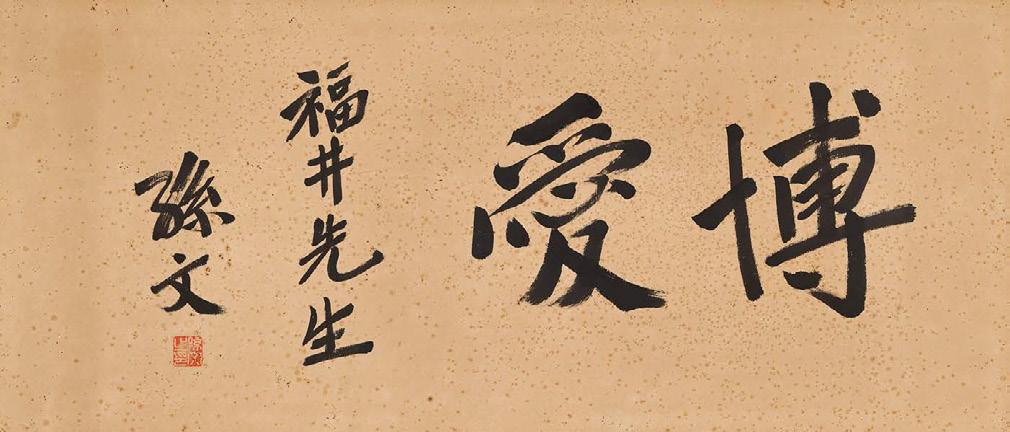 博愛
福井先生
孫文